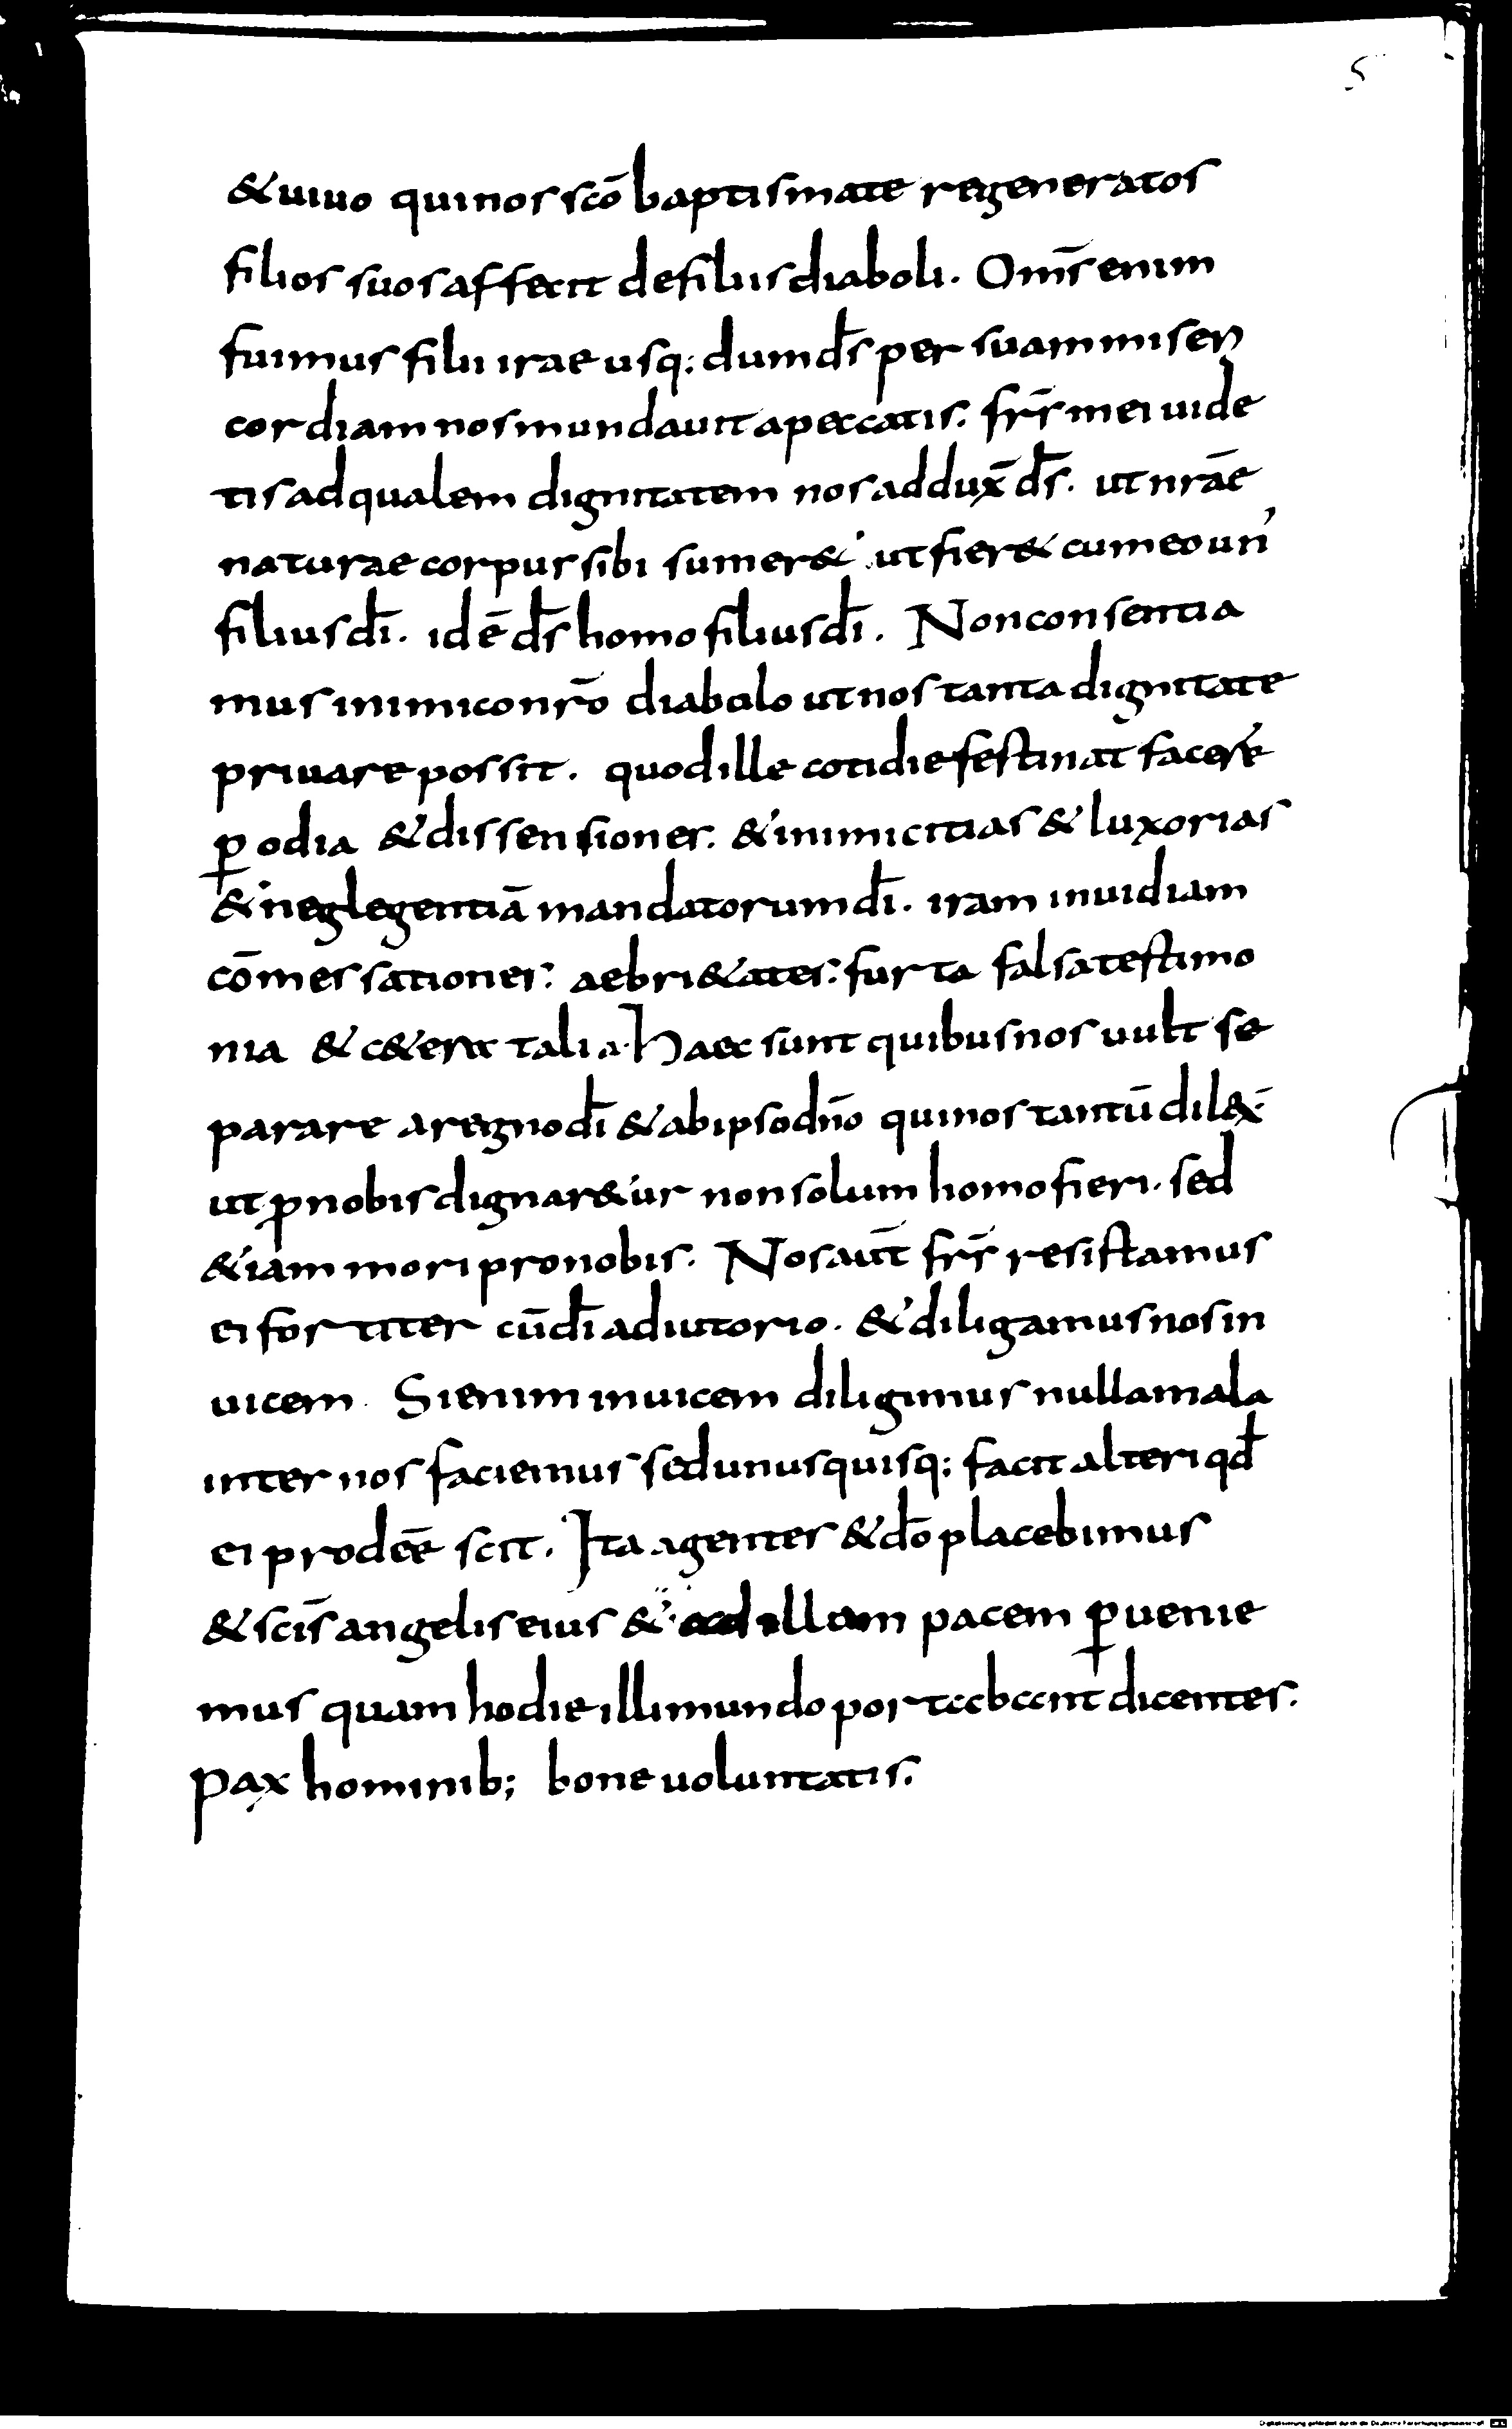 5
& uiuo qui nos scō baptismate regeneratos
filios suos affecit de filiis diaboli. Om̄s enim
fuimus filii irae usq; dum d̄s per suam miseri
cordiam nos mundauit a peccatis. fr̄s mei uide
tis ad qualem dignitatem nos addux̄ d̄s. ut nr̄ae
naturae corpus sibi sumer& ut fier& cum eo un'
filius dī. idē d̄s homo filius dī. Non consentia
mus inimico nr̄o diabolo ut nos tanta dignitate
priuare possit. quod ille cotidie festinat facere
p̱ odia & dissensiones. & inimicitias & luxorias
& neglegentiā mandatorum dī. iram inuidiam
cōmessationes. aebri&ates. furta falsa testimo
nia & c&era talia. Haec sunt quibus nos uult se
parare a regno dī & ab ipso dn̄o qui nos tantū dilex̄
ut ꝓ nobis dignar&ur non solum homo fieri. sed
&iam mori pro nobis. Nos aut̄ fr̄s resistamus
ei fortiter cū dī adiutorio. & diligamus nos in
uicem. Si enim inuicem diligimus nulla mala
inter nos faciemus sed unusquisq; facit alteri qd̄
ei prodeē scit. Ita agentes & dō placebimus
& scīs angelis eius & ad illam pacem p̱uenie
mus quam hodie illi mundo portabant dicentes.
Pax hominib; bone uoluntatis.